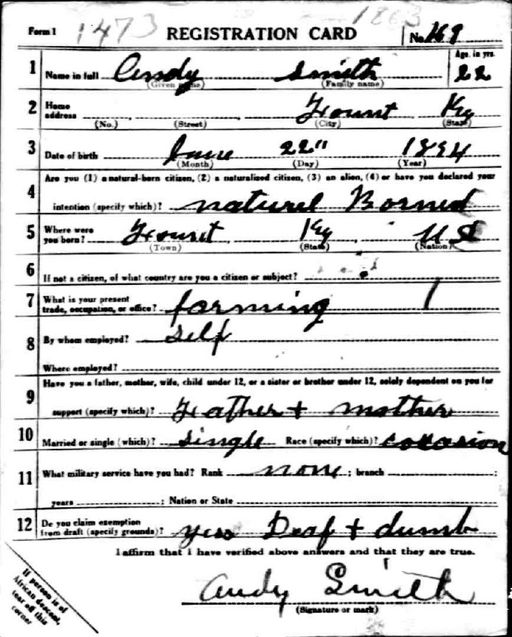 1473 1863
Form 1 REGISTRATION CARD No. 169
1 Name in full Andy Smith Age, in yrs. 22
(Given name) (Family name)
2 Home address Yount Ky
(No.) (Street) (City) (State)
3 Date of birth June 22" 1894
(Month) (Day) (Year)
4 Are you (1) a natural-born citizen, (2) a naturalized citizen, (3) an alien, (4) or have you declared your
intention (specify which)? naturel Borned
5 Where were you born? Yount Ky U S
(Town) (State) (Nation)
6 If not a citizen, of what country are you a citizen or subject?
7 What is your present trade, occupation, or office? farming
8 By whom employed? self
Where employed?
9 Have you a father, mother, wife, child under 12, or a sister or brother under 12, solely dependent on you for
support (specify which)? Father + mother
10 Married or single (which)? single Race (specify which)?
11 What military service have you had? Rank none ; branch
years ; Nation or State
12 Do you claim exemption from draft (specify grounds)? yes Deaf + dumb
I affirm that I have verified above answers and that they are true.
Andy Smith
(Signature or mark)
If person is of
African descent,
tear off this
corner